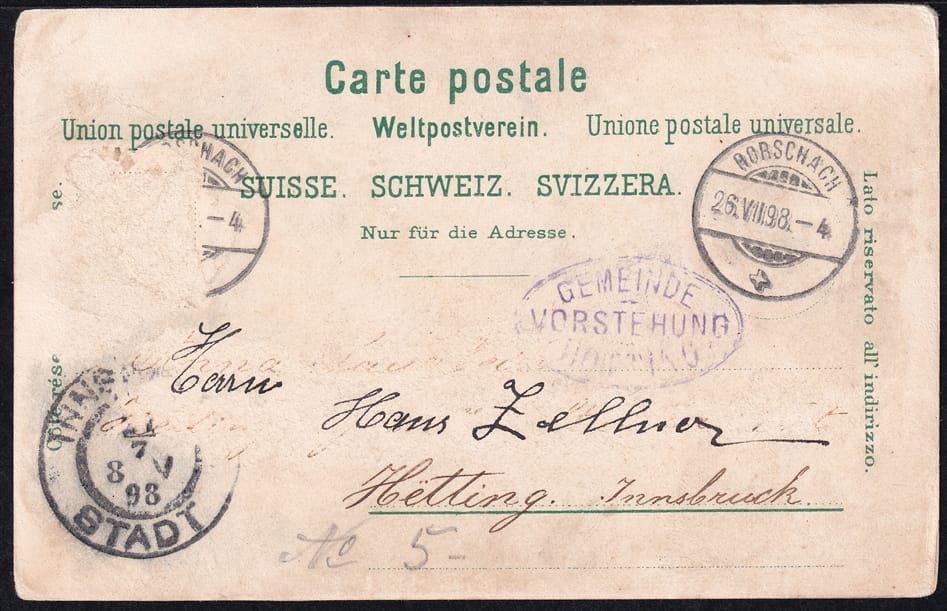 Carte postale
Union postale universelle. Weltpostverein. Unione postale universale.
SUISSE. SCHWEIZ. SVIZZERA.
Nur für die Adresse.
RORSCHACH
26.VII.98.–4
RSCHACH
–4
Lato riservato all' indirizzo.
GEMEINDE
VORSTEHUNG
Herrn
Hans Zellner
Hötting. Innsbruck
No 5–
STADT
7
8 V
98